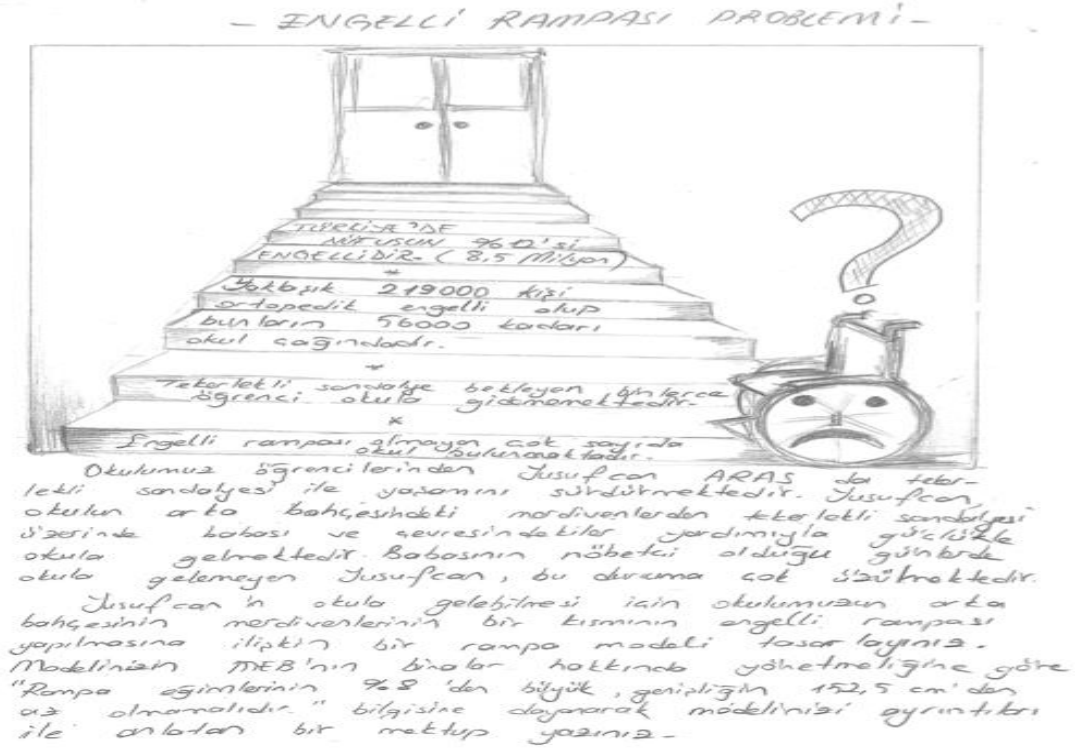 - ENGELLİ RAMPASI PROBLEMİ -
TÜRKİYE'DE
NÜFUSUN %12'si
ENGELLİDİR. (8,5 Milyon)
*
Yaklaşık 219000 kişi
ortopedik engelli olup
bunların 56000 kadarı
okul çağındadır.
*
Tekerlekli sandalye bekleyen binlerce
öğrenci okula gidememektedir.
*
Engelli rampası olmayan çok sayıda
okul bulunmaktadır.
?
Okulumuz öğrencilerinden Yusufcan ARAS da teker-
lekli sandalyesi ile yaşamını sürdürmektedir. Yusufcan,
okulun arka bahçesindeki merdivenlerden tekerlekli sandalyesi
üzerinde babası ve çevresindekiler yardımıyla güçlükle
okula gelmektedir. Babasının nöbetçi olduğu günlerde
okula gelemeyen Yusufcan, bu duruma çok üzülmektedir.
Yusufcan'ın okula gelebilmesi için okulumuzun arka
bahçesinin merdivenlerinin bir kısmının engelli rampası
yapılmasına ilişkin bir rampa modeli tasarlayınız.
Modelinizin MEB'nın binalar hakkında yönetmeliğine göre
"Rampa eğimlerinin %8'den büyük, genişliğin 152,5 cm'den
az olmamalıdır." bilgisine dayanarak modelinizi ayrıntıları
ile anlatan bir mektup yazınız.